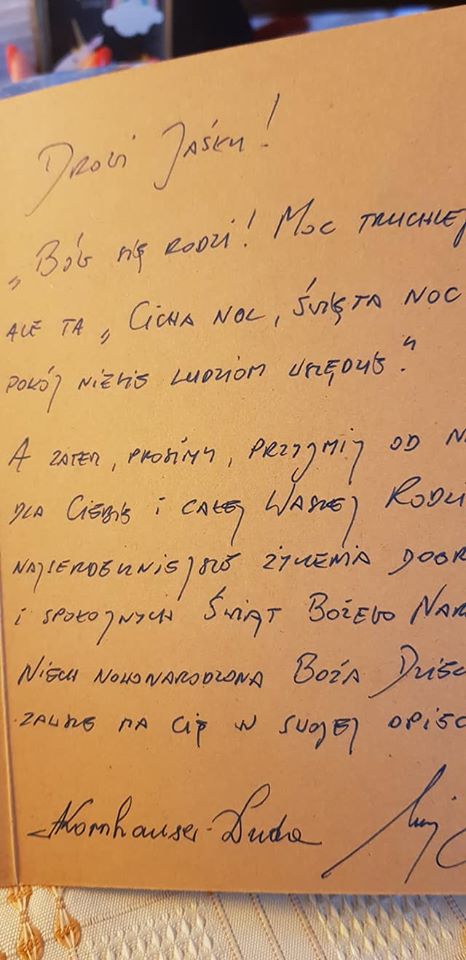 Drogi Jaśku!
„Bóg się rodzi! Moc truchlej
ale ta „Cicha noc, święta noc
pokój niesie ludziom wszędzie."
A zatem, prosimy, przyjmij od N
dla Ciebie i całej Waszej Rodzi
najserdeczniejsze życzenia dobr
i spokojnych Świąt Bożego Nar
Niech nowonarodzona Boża Dziec
zawsze ma Cię w swojej opiec
AKornhauser-Duda